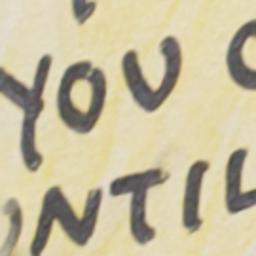 YOU
UNTIL